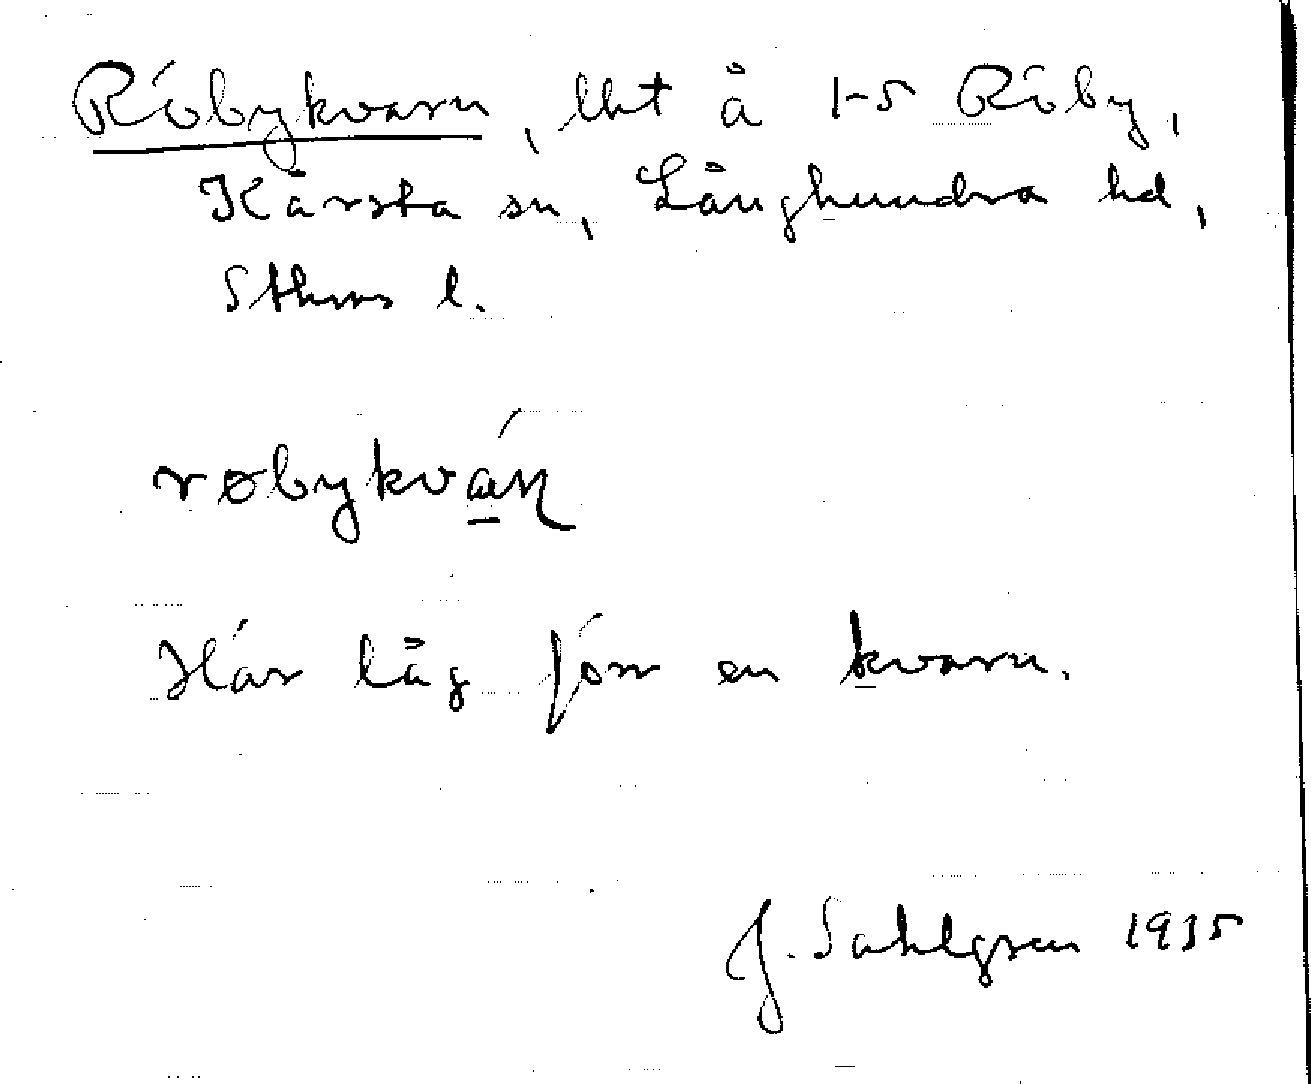 Röbykvarn, lht å 1-5 Röby,
Kårsta sn, Långhundra hd,
Sthms l.
røbykván
Här låg förr en kvarn.
J. Sahlgren 1935